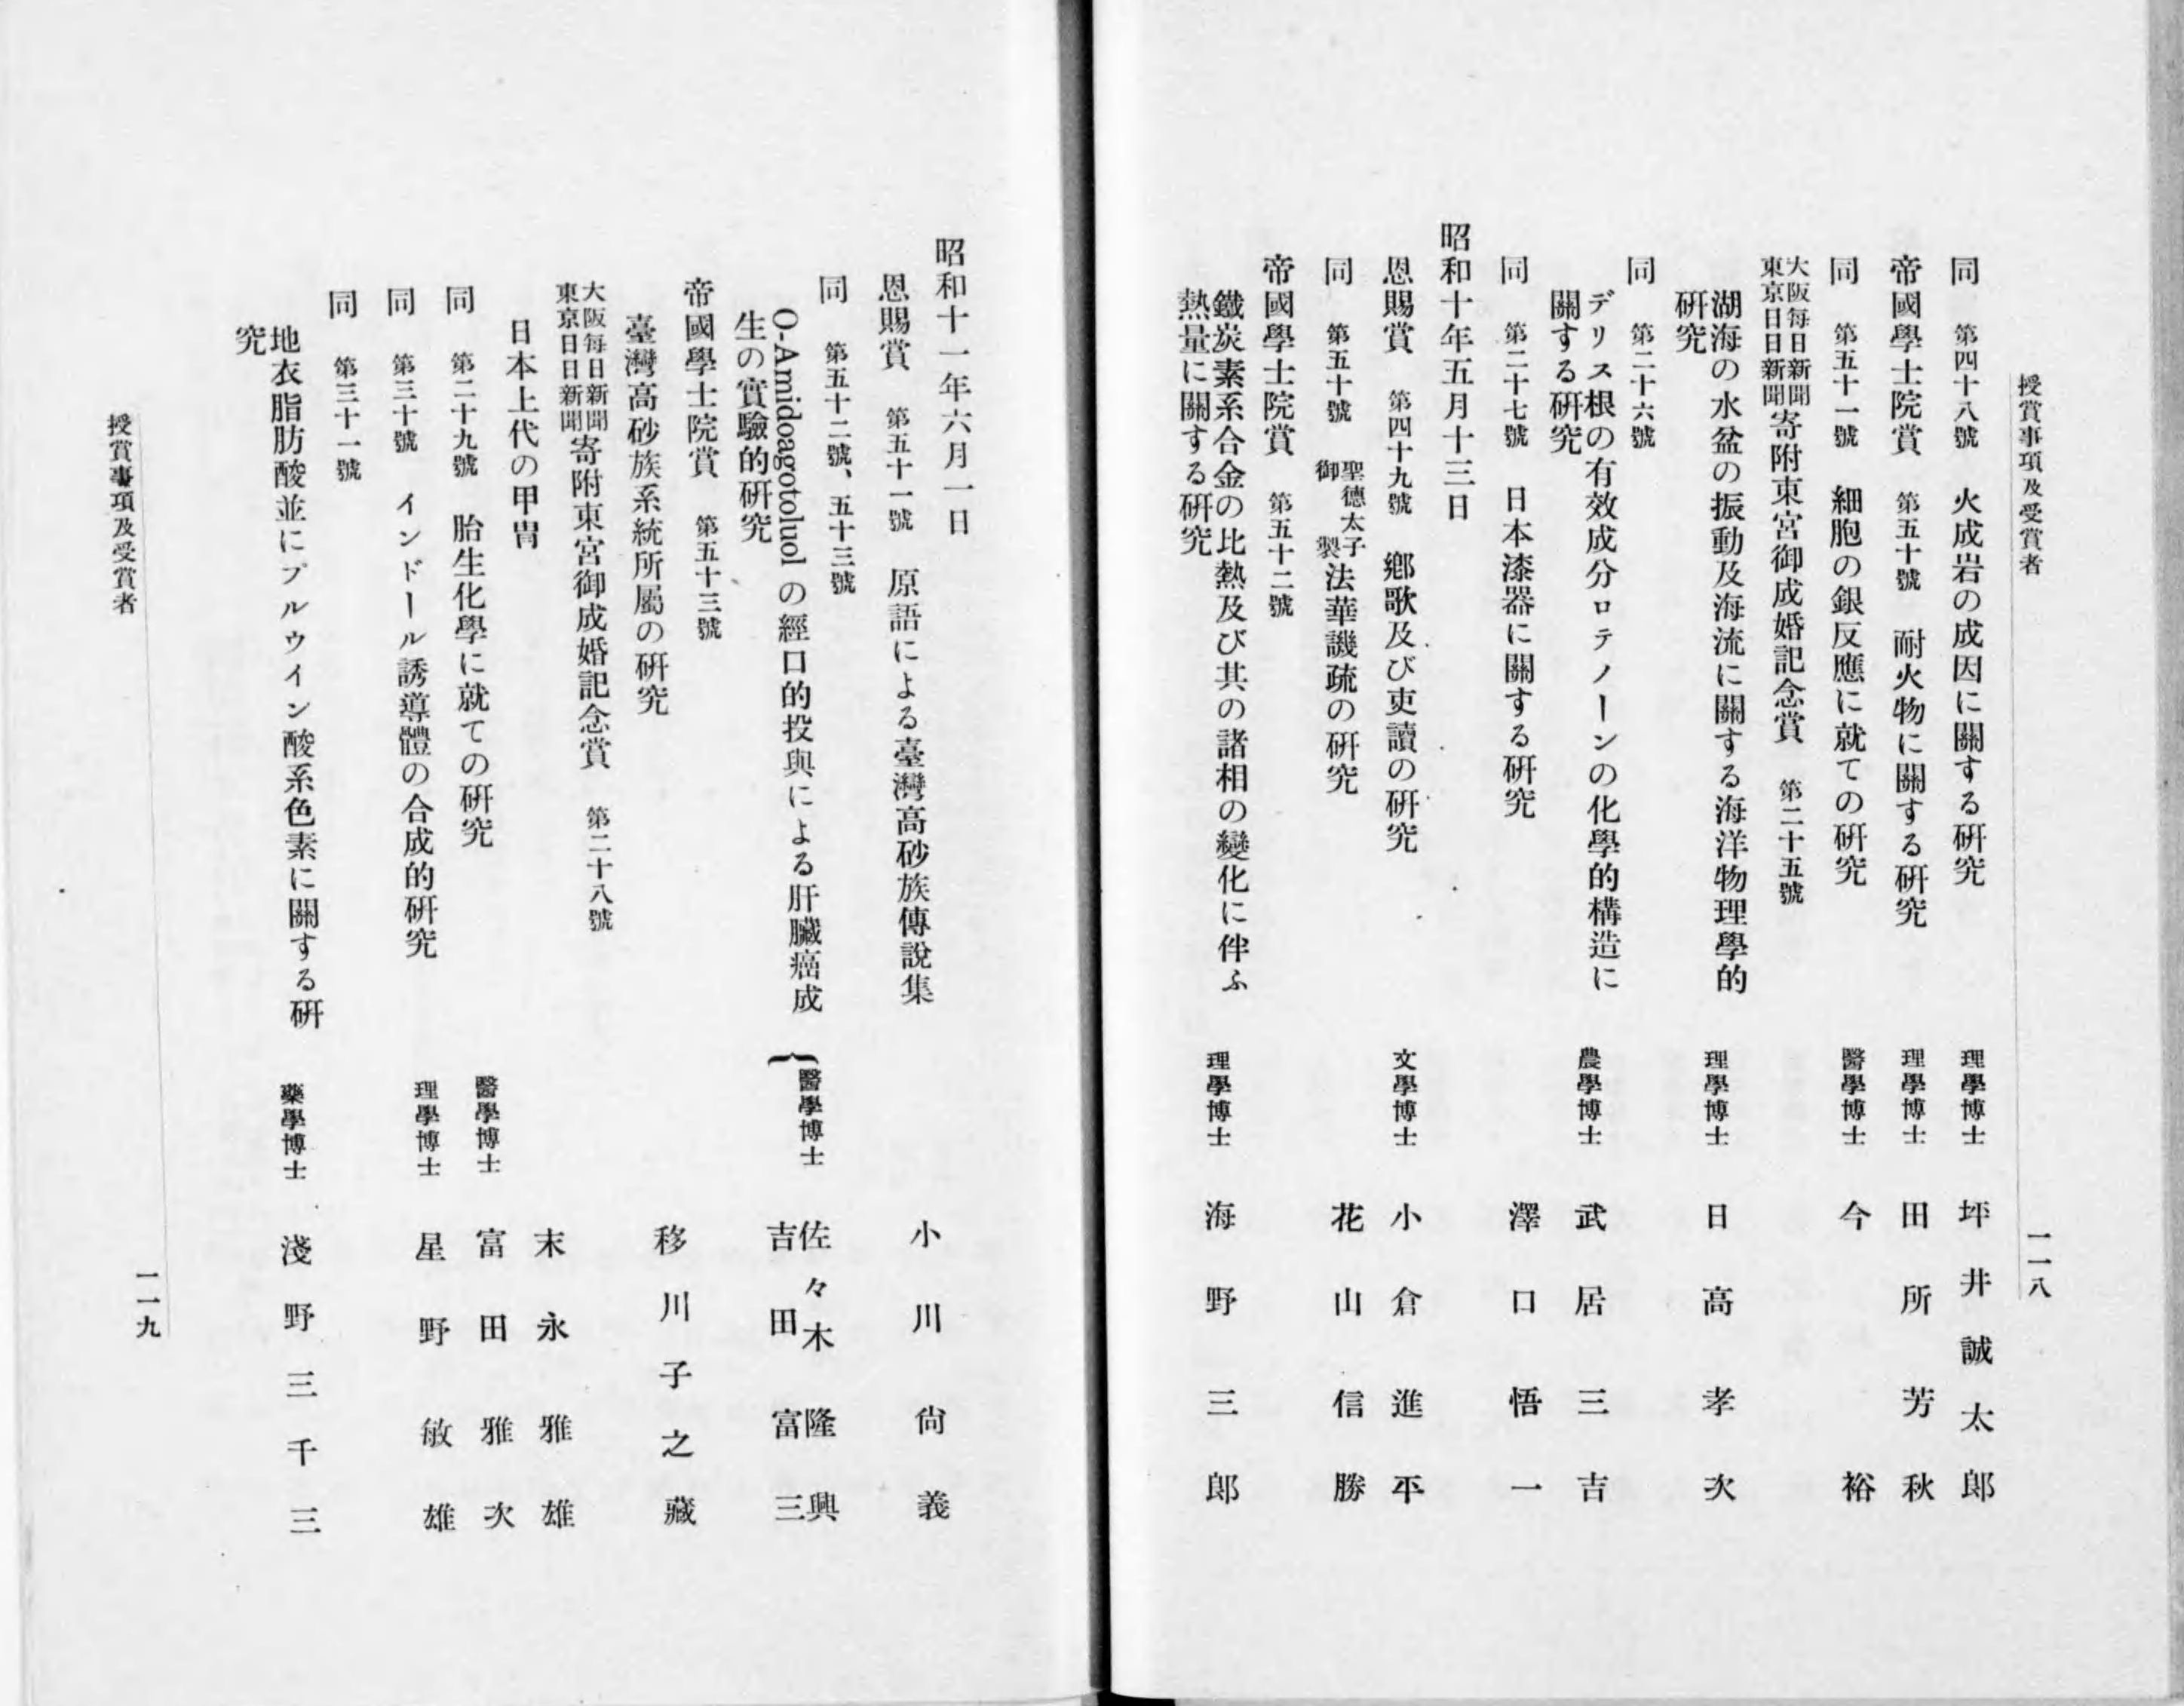 授賞事項及受賞者
一一八
同 第四十八號 火成岩の成因に關する硏究 理學博士 坪井誠太郎
帝國學士院賞 第五十號 耐火物に關する硏究 理學博士 田所芳秋
同 第五十一號 細胞の銀反應に就ての硏究 醫學博士 今裕
大阪每日新聞
東京日日新聞
寄附東宮御成婚記念賞 第二十五號
湖海の水盆の振動及海流に關する海洋物理學的
硏究
理學博士 日高孝次
同 第二十六號
デリス根の有效成分ロテノーンの化學的構造に
關する硏究
農學博士 武居三吉
同 第二十七號 日本漆器に關する硏究 澤口悟一
昭和十年五月十三日
恩賜賞 第四十九號 鄕歌及び吏讀の硏究 文學博士 小倉進平
同 第五十號
聖德太子
御製
法華義疏の硏究 花山信勝
帝國學士院賞 第五十二號
鐵炭素系合金の比熱及び其の諸相の變化に伴ふ
熱量に關する硏究
理學博士 海野三郎
昭和十一年六月一日
恩賜賞 第五十一號 原語による臺灣高砂族傳說集 小川尙義
同 第五十二號、五十三號
O-Amidoagotoluol の經口的投與による肝臟癌成
生の實驗的硏究
醫學博士 佐々木隆興
吉田富三
帝國學士院賞 第五十三號
臺灣高砂族系統所屬の硏究 移川子之藏
大阪每日新聞
東京日日新聞
寄附東宮御成婚記念賞 第二十八號
日本上代の甲冑 末永雅雄
同 第二十九號 胎生化學に就ての硏究 醫學博士 富田雅次
同 第三十號 インドール誘導體の合成的硏究 理學博士 星野敏雄
同 第三十一號
地衣脂肪酸並にプルウイン酸系色素に關する硏
究
藥學博士 淺野三千三
授賞事項及受賞者
一一九